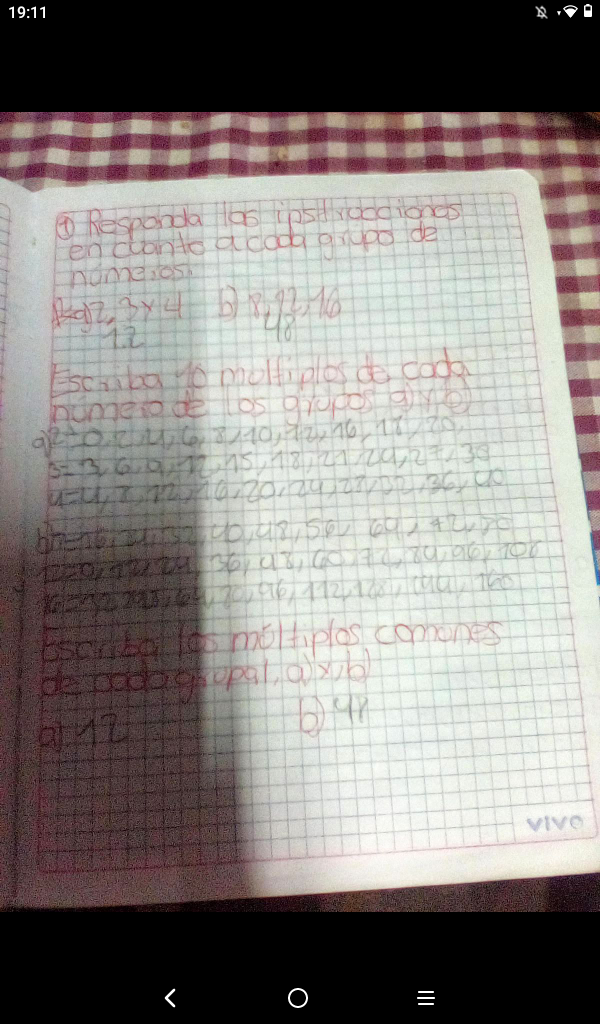 19:11
① Responda las instrucciones
en cuanto a cada grupo de
números.
a) 2, 3 y 4 b) 8, 12, 16
12 48
Escriba 10 moltiplos de cada
número de los grupos a) y b)
a) 2=0, 2, 4, 6, 8, 10, 12, 16, 18, 20,
3=3, 6, 9, 12, 15, 18, 21, 24, 27, 30
4=4, 8, 12, 16, 20, 24, 28, 32, 36, 40
24, 32, 40, 48, 56, 64, 72,
24, 36, 48, 60, 72, 84, 96,
64, 96, 112, 128, 144, 160
Escriba los múltiplos comones
de cada a) y b)
a) 12 b) 48
vivo